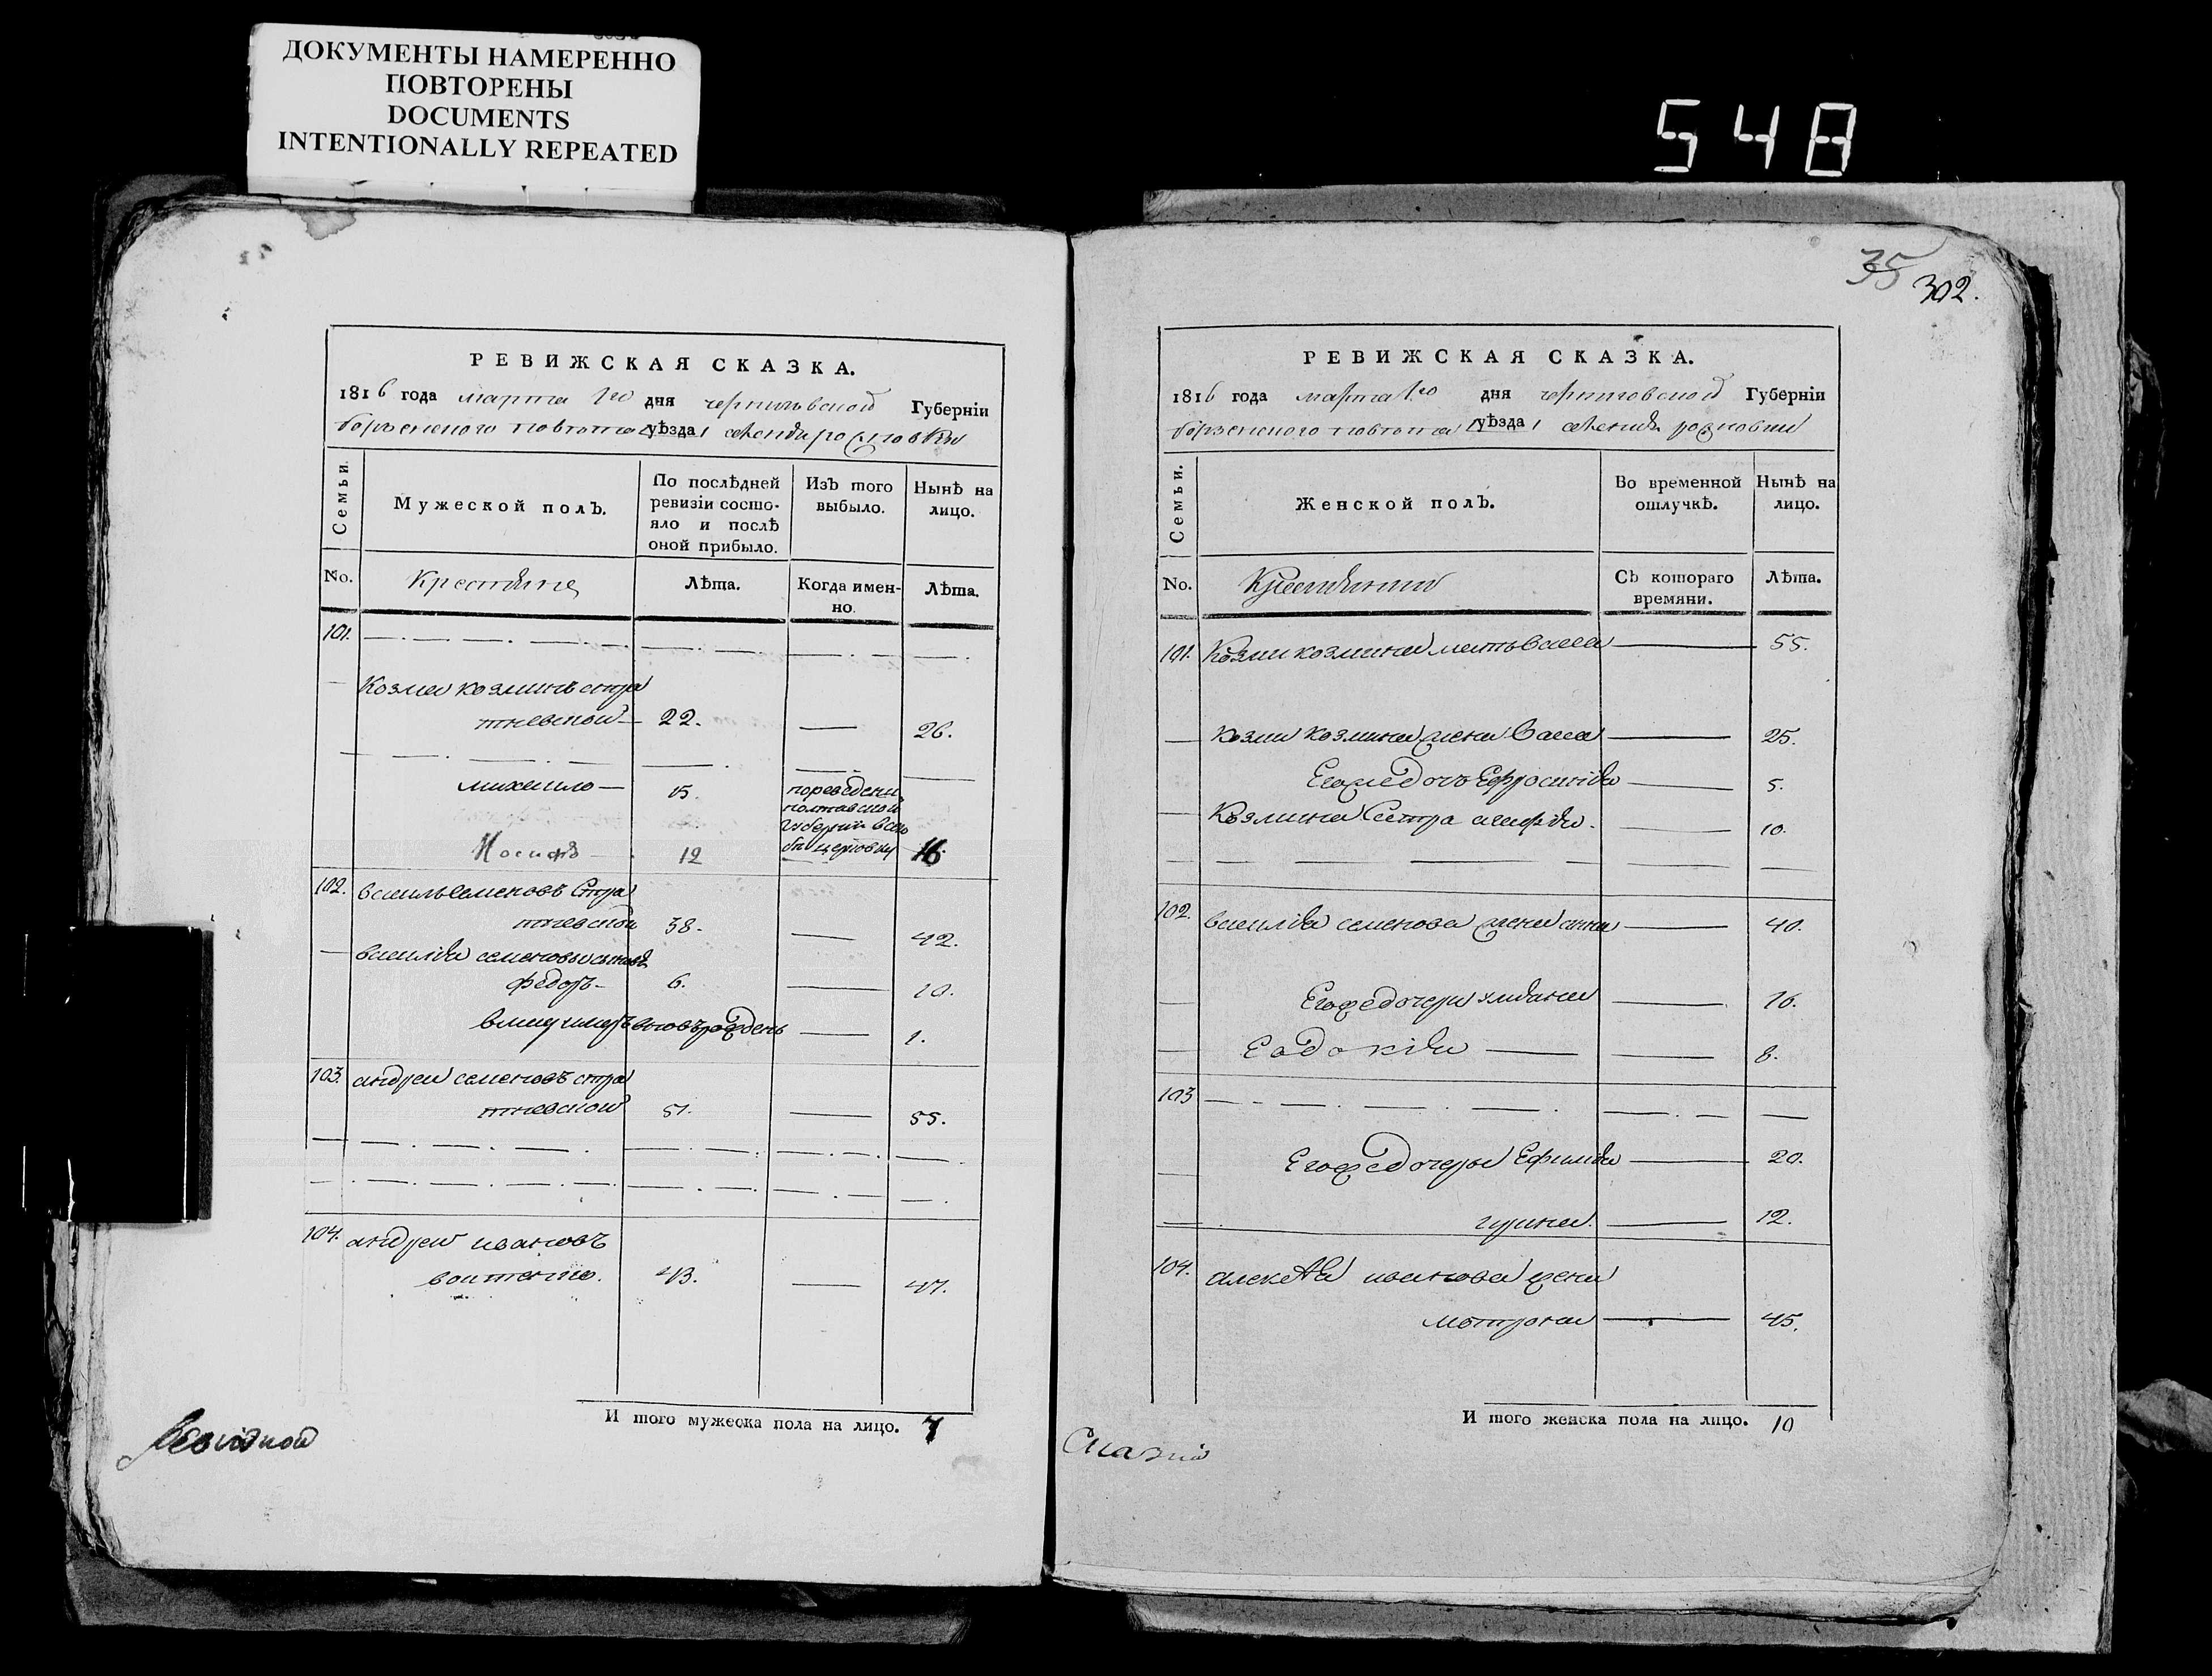 ДОКУМЕНТЫ НАМЕРЕННО
ПОВТОРЕНЫ
DOCUMENTS
INTENTIONALLY REPEATED
548
РЕВИЖСКАЯ СКАЗКА.
1816 года марта 1го дня черниговской Губерніи
борзенского повета уѣзда
Семьи.
Мужеской полЪ.
По послѣдней
ревизіи состо-
яло и послѣ
оной прибыло.
ИзЪ того
выбыло.
Нынѣ на
лицо.
No.
Крестяне
Лѣта.
Когда имен-
но.
Лѣта.
101.
Козма козминъ стра
тиевской 22. 26.
михаило 15. переведенъ
полтавской
губернии в село
Иосифъ 12 16
102. василь семеновъ стра
тиевской 38. 42.
василия семеновы сыновя
федоръ 6. 10.
новорожденъ 1.
103. андрей семеновъ стра
тиевской 51. 55.
104. андрей ивановъ
воитенко. 43. 47.
И того мужеска пола на лицо. 7
Ревизкой
35
302.
РЕВИЖСКАЯ СКАЗКА.
1816 года марта 1го дня черниговской Губерніи
борзенского повета уѣзда
Семьи.
Женской полЪ.
Во временной
отлучкѣ.
Нынѣ на
лицо.
No.
Крестянки
СЬ котораго
времяни.
Лѣта.
101. Козми козмина мать васса 55.
Козми козмина жена васса 25.
Его же дочъ Ефросинія 5.
Козмина сестра агафія. 10.
102. василия семенова жена анна 40.
Его же дочери улияна 16.
Евдокія 8.
103
Его же дочеры Ефимия 20.
ирина. 12.
104. алексея иванова жена
мотрона 45.
И того женска пола на лицо. 10
Сказки